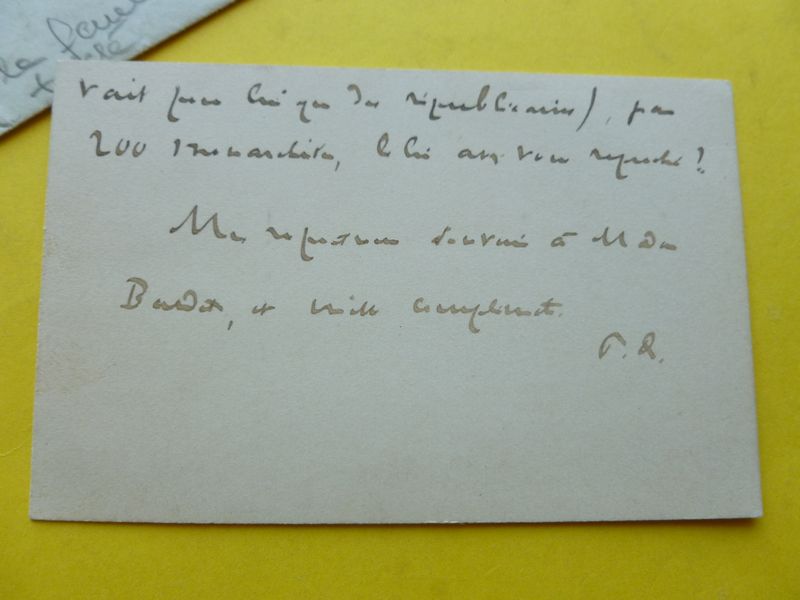 la
vait pour lui que des républicains), par
200 monarchistes, le lui avez vous reproché?
Mes respectueux souvenirs à Madame
Bardet, et mille compliments.
P. R.